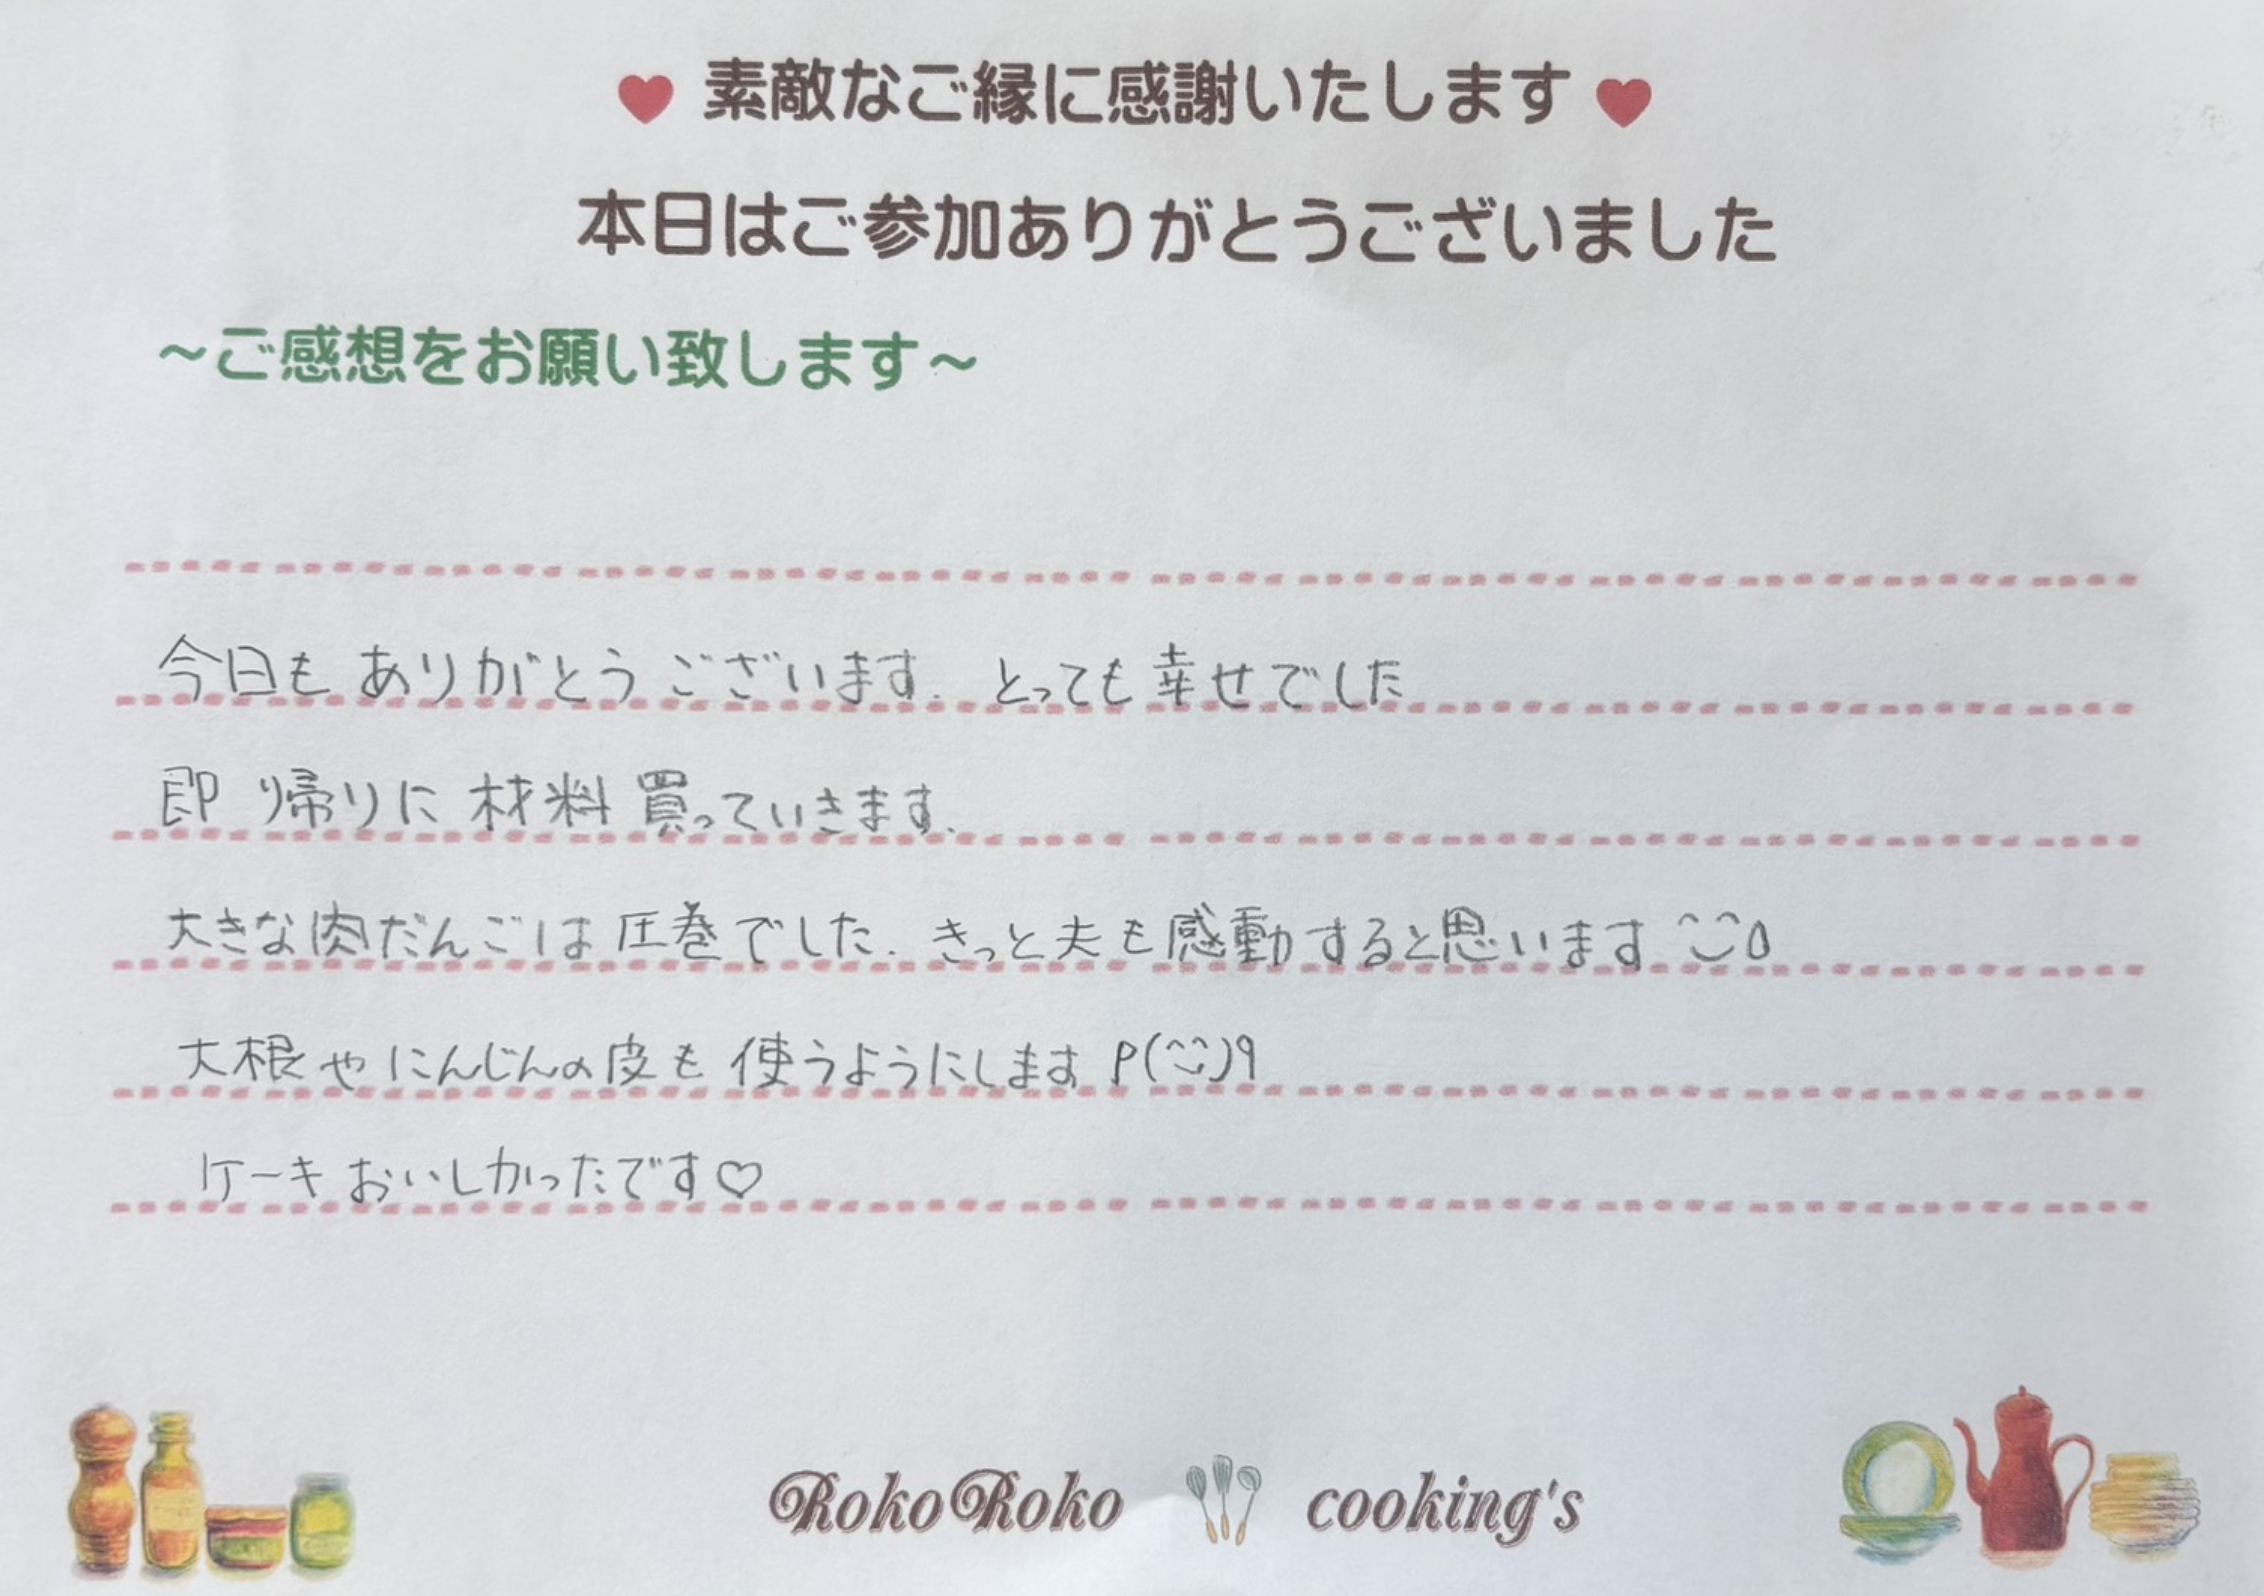 ♥ 素敵なご縁に感謝いたします ♥
本日はご参加ありがとうございました
～ご感想をお願い致します～
今日も ありがとう ございます. とっても 幸せでした
即 帰りに 材料 買っていきます.
大きな肉だんごは 圧巻でした. きっと夫も感動すると思います ^‿^0
大根や にんじんの皮も 使うようにします P(^‿^)q
ケーキ おいしかったです♡
RokoRoko cooking's